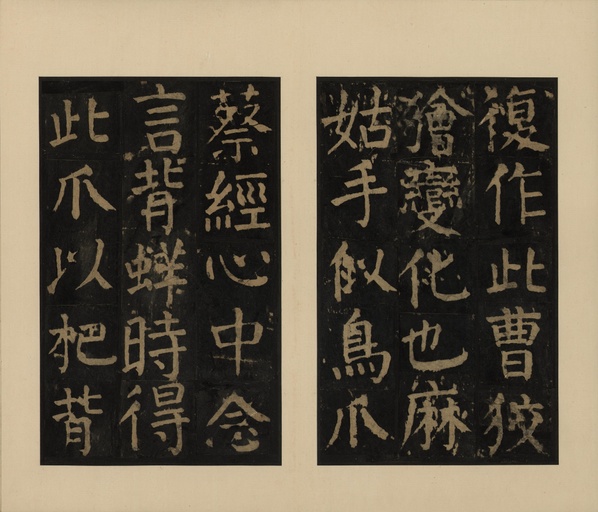 復作此曹狡
獪變化也麻
姑手似鳥爪
蔡經心中念
言背蛘時得
此爪以杷背